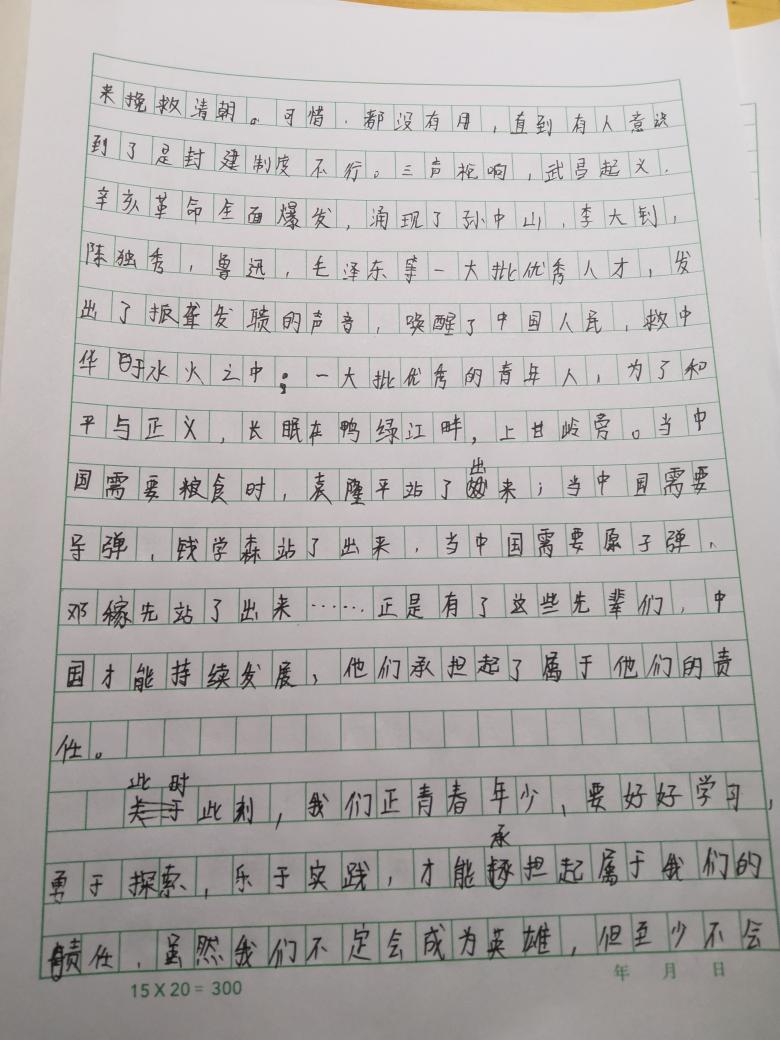 来挽救清朝。可惜,都没有用,直到有人意识
到了是封建制度不行。三声枪响,武昌起义,
辛亥革命全面爆发,涌现了孙中山,李大钊,
陈独秀,鲁迅,毛泽东等一大批优秀人才,发
出了振聋发聩的声音,唤醒了中国人民,救中
华于水火之中;一大批优秀的青年人,为了和
平与正义,长眠在鸭绿江畔,上甘岭旁。当中
国需要粮食时,袁隆平站了出来;当中国需要
导弹,钱学森站了出来,当中国需要原子弹、
邓稼先站了出来……正是有了这些先辈们,中
国才能持续发展,他们承担起了属于他们的责
任。
此时此刻,我们正青春年少,要好好学习,
勇于探索,乐于实践,才能承担起属于我们的
责任,虽然我们不定会成为英雄,但至少不会
15×20=300
年 月 日